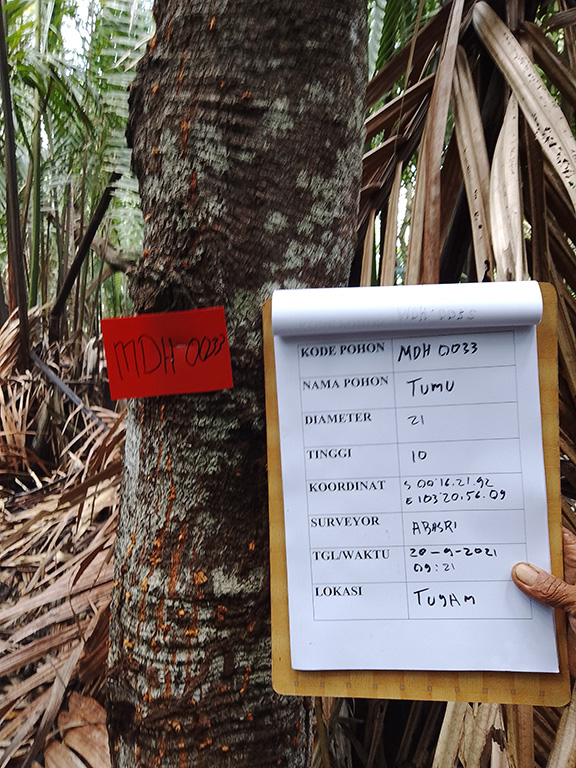 MDH-0033
KODE POHON MDH 0033
NAMA POHON TUMU
DIAMETER 21
TINGGI 10
KOORDINAT S 00°16.21.92
E 103°20.56.09
SURVEYOR ABASRI
TGL/WAKTU 20-9-2021
09:21
LOKASI TUGAM